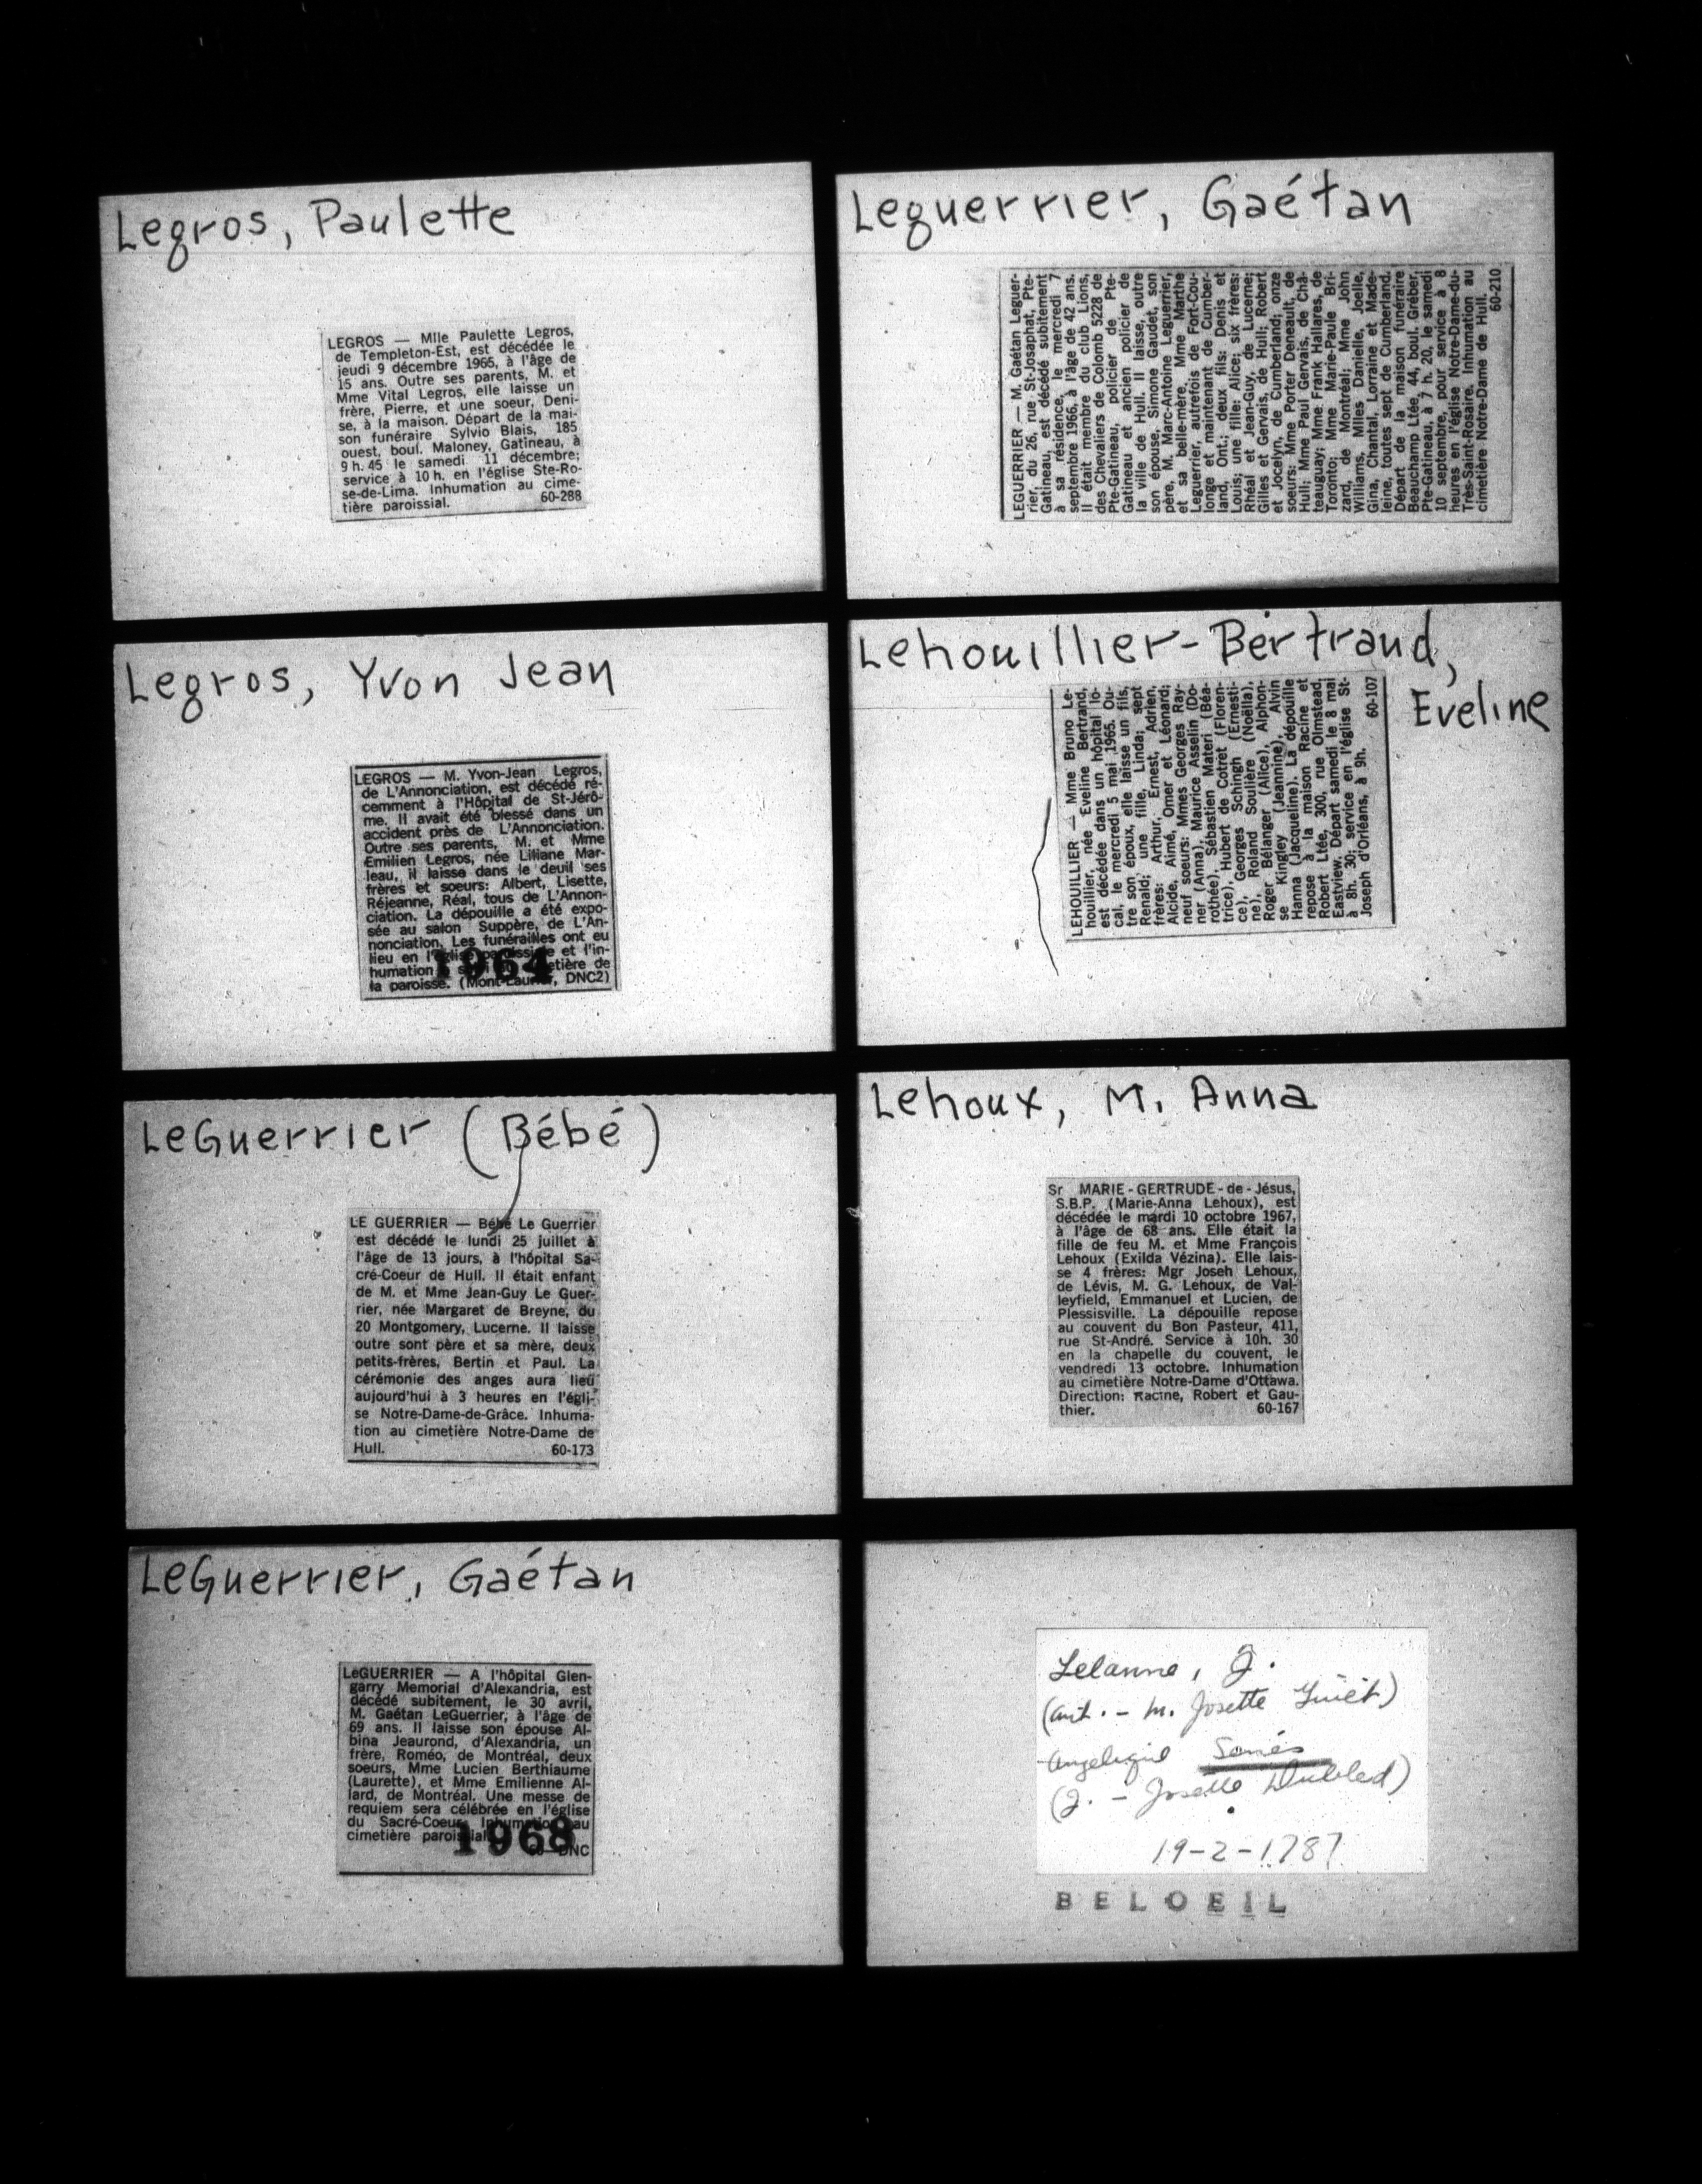 Legros, Paulette
LEGROS — Mlle Paulette Legros,
de Templeton-Est, est décédée le
jeudi 9 décembre 1965, à l'âge de
15 ans. Outre ses parents, M. et
Mme Vital Legros, elle laisse un
frère, Pierre, et une soeur, Deni-
se, à la maison. Départ de la mai-
son funéraire Sylvio Blais, 185
ouest, boul. Maloney, Gatineau, à
9 h. 45 le samedi 11 décembre;
service à 10 h. en l'église Ste-Ro-
se-de-Lima. Inhumation au cime-
tière paroissial. 60-288
Legros, Yvon Jean
LEGROS — M. Yvon-Jean Legros,
de L'Annonciation, est décédé ré-
cemment à l'Hôpital de St-Jérô-
me. Il avait été blessé dans un
accident près de L'Annonciation.
Outre ses parents, M. et Mme
Emilien Legros, née Liliane Mar-
leau, il laisse dans le deuil ses
frères et soeurs: Albert, Lisette,
Réjeanne, Réal, tous de L'Annon-
ciation. La dépouille a été expo-
sée au salon Suppère, de L'An-
nonciation. Les funérailles ont eu
lieu en l'église paroissiale et l'in-
humation cimetière de
la paroisse. (Mont-Laurier, DNC2)
1964
LeGuerrier (Bébé)
LE GUERRIER — Bébé Le Guerrier
est décédé le lundi 25 juillet à
l'âge de 13 jours, à l'hôpital Sa-
cré-Coeur de Hull. Il était enfant
de M. et Mme Jean-Guy Le Guer-
rier, née Margaret de Breyne, du
20 Montgomery, Lucerne. Il laisse
outre sont père et sa mère, deux
petits-frères, Bertin et Paul. La
cérémonie des anges aura lieu
aujourd'hui à 3 heures en l'égli-
se Notre-Dame-de-Grâce. Inhuma-
tion au cimetière Notre-Dame de
Hull. 60-173
LeGuerrier, Gaétan
LeGUERRIER — A l'hôpital Glen-
garry Memorial d'Alexandria, est
décédé subitement, le 30 avril,
M. Gaétan LeGuerrier, à l'âge de
69 ans. Il laisse son épouse Al-
bina Jeaurond, d'Alexandria, un
frère, Roméo, de Montréal, deux
soeurs, Mme Lucien Berthiaume
(Laurette), et Mme Emilienne Al-
lard, de Montréal. Une messe de
requiem sera célébrée en l'église
du Sacré-Coeur. Inhumation au
cimetière paroissial.
DNC
1968
Leguerrier, Gaétan
LEGUERRIER — M. Gaétan Leguer-
rier, du 26, rue St-Josaphat, Pte-
Gatineau, est décédé subitement
à sa résidence, le mercredi 7
septembre 1966, à l'âge de 42 ans.
Il était membre du club Lions,
des Chevaliers de Colomb 5228 de
Pte-Gatineau, policier de Pte-
Gatineau et ancien policier de
la ville de Hull. Il laisse, outre
son épouse, Simone Gaudet, son
père, M. Marc-Antoine Leguerrier,
et sa belle-mère, Mme Marthe
Leguerrier, autrefois de Fort-Cou-
longe et maintenant de Cumber-
land, Ont.; deux fils: Denis et
Louis; une fille: Alice; six frères:
Rhéal et Jean-Guy, de Lucerne;
Gilles et Gervais, de Hull; Robert
et Jocelyn, de Cumberland; onze
soeurs: Mme Porter Deneault, de
Hull; Mme Paul Gervais, de Châ-
teauguay; Mme Frank Hallares, de
Toronto; Mme Marie-Paule Bri-
zard, de Montréal; Mme John
Williams, Mlles Danielle, Joelle,
Gina, Chantal, Lorraine et Made-
leine, toutes sept de Cumberland.
Départ de la maison funéraire
Beauchamp Ltée, 44, boul. Gréber,
Pte-Gatineau, à 7 h. 20, le samedi
10 septembre, pour service à 8
heures en l'église Notre-Dame-du-
Très-Saint-Rosaire. Inhumation au
cimetière Notre-Dame de Hull.
60-210
Lehouillier-Bertrand,
Eveline
LEHOUILLIER — Mme Bruno Le-
houillier, née Eveline Bertrand,
est décédée dans un hôpital lo-
cal, le mercredi 5 mai 1965. Ou-
tre son époux, elle laisse un fils,
Renald; une fille, Linda; sept
frères: Arthur, Ernest, Adrien,
Alcide, Aimé, Omer et Léonard;
neuf soeurs: Mmes Georges Ray-
ner (Anna), Maurice Asselin (Do-
rothée), Sébastien Materi (Béa-
trice), Hubert de Cotret (Floren-
ce), Georges Schingh (Ernesti-
ne), Roland Soulière (Noëlla),
Roger Bélanger (Alice), Alphon-
se Kingley (Jeannine), Alvin
Hanna (Jacqueline). La dépouille
repose à la maison Racine et
Robert Ltée, 300, rue Olmstead,
Eastview. Départ samedi le 8 mai
à 8h. 30; service en l'église St-
Joseph d'Orléans, à 9h.
60-107
Lehoux, M. Anna
Sr MARIE-GERTRUDE-de-Jésus,
S.B.P. (Marie-Anna Lehoux), est
décédée le mardi 10 octobre 1967,
à l'âge de 68 ans. Elle était la
fille de feu M. et Mme François
Lehoux (Exilda Vézina). Elle lais-
se 4 frères: Mgr Joseh Lehoux,
de Lévis, M. G. Lehoux, de Val-
leyfield, Emmanuel et Lucien, de
Plessisville. La dépouille repose
au couvent du Bon Pasteur, 411,
rue St-André. Service à 10h. 30
en la chapelle du couvent, le
vendredi 13 octobre. Inhumation
au cimetière Notre-Dame d'Ottawa.
Direction: Racine, Robert et Gau-
thier. 60-167
Lelanne, J.
(ant. - M. Josette)
Angelique
(J. - Josette)
19-2-1787
BELOEIL